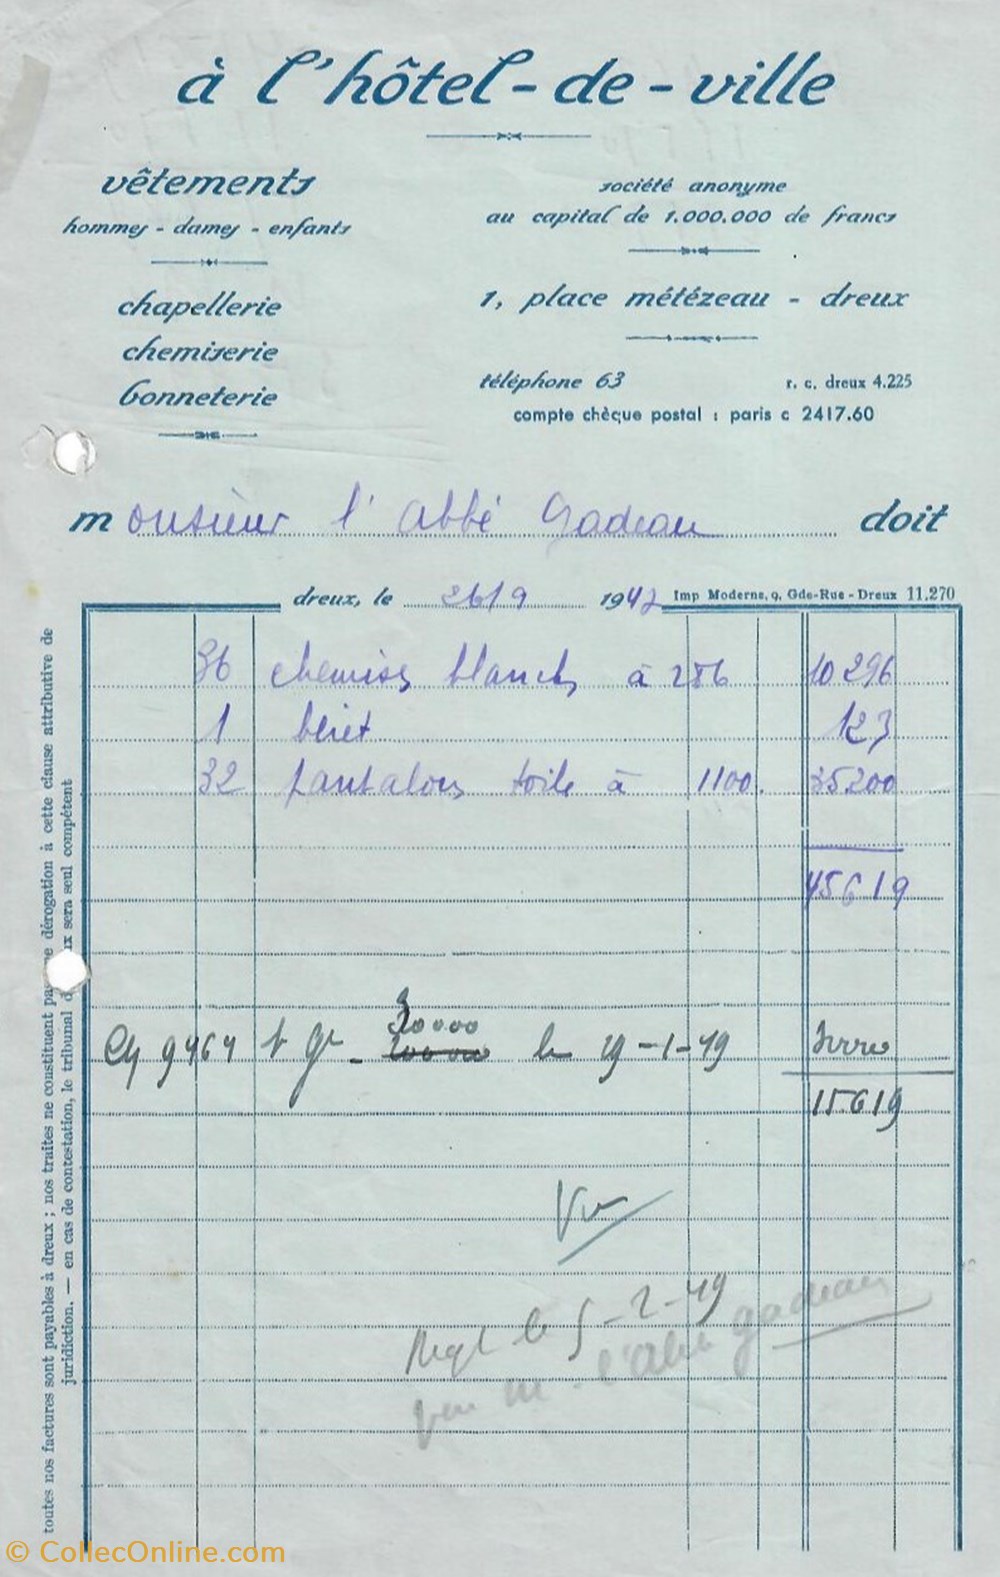 à l'hôtel-de-ville
vêtements
hommes - dames - enfants
chapellerie
chemiserie
bonneterie
société anonyme
au capital de 1.000.000 de francs
1, place métézeau - dreux
téléphone 63
r. c. dreux 4.225
compte chèque postal : paris c 2417.60
monsieur l'Abbé Gadeau doit
dreux, le 26 1 9 1942 Imp Moderne, 9, Gde-Rue - Dreux 11.270
36 chemises blanches à 286 10 296
1 béret 123
32 pantalons toile à 1100. 35200
45619
9464 30000 le 19-1-49
15.619
Vu
Regl le 5-2-49
par m. l'Abbé Gadeau
toutes nos factures sont payables à dreux ; nos traites ne constituent pas une dérogation à cette clause attributive de
juridiction. — en cas de contestation, le tribunal sera seul compétent
© CollecOnline.com